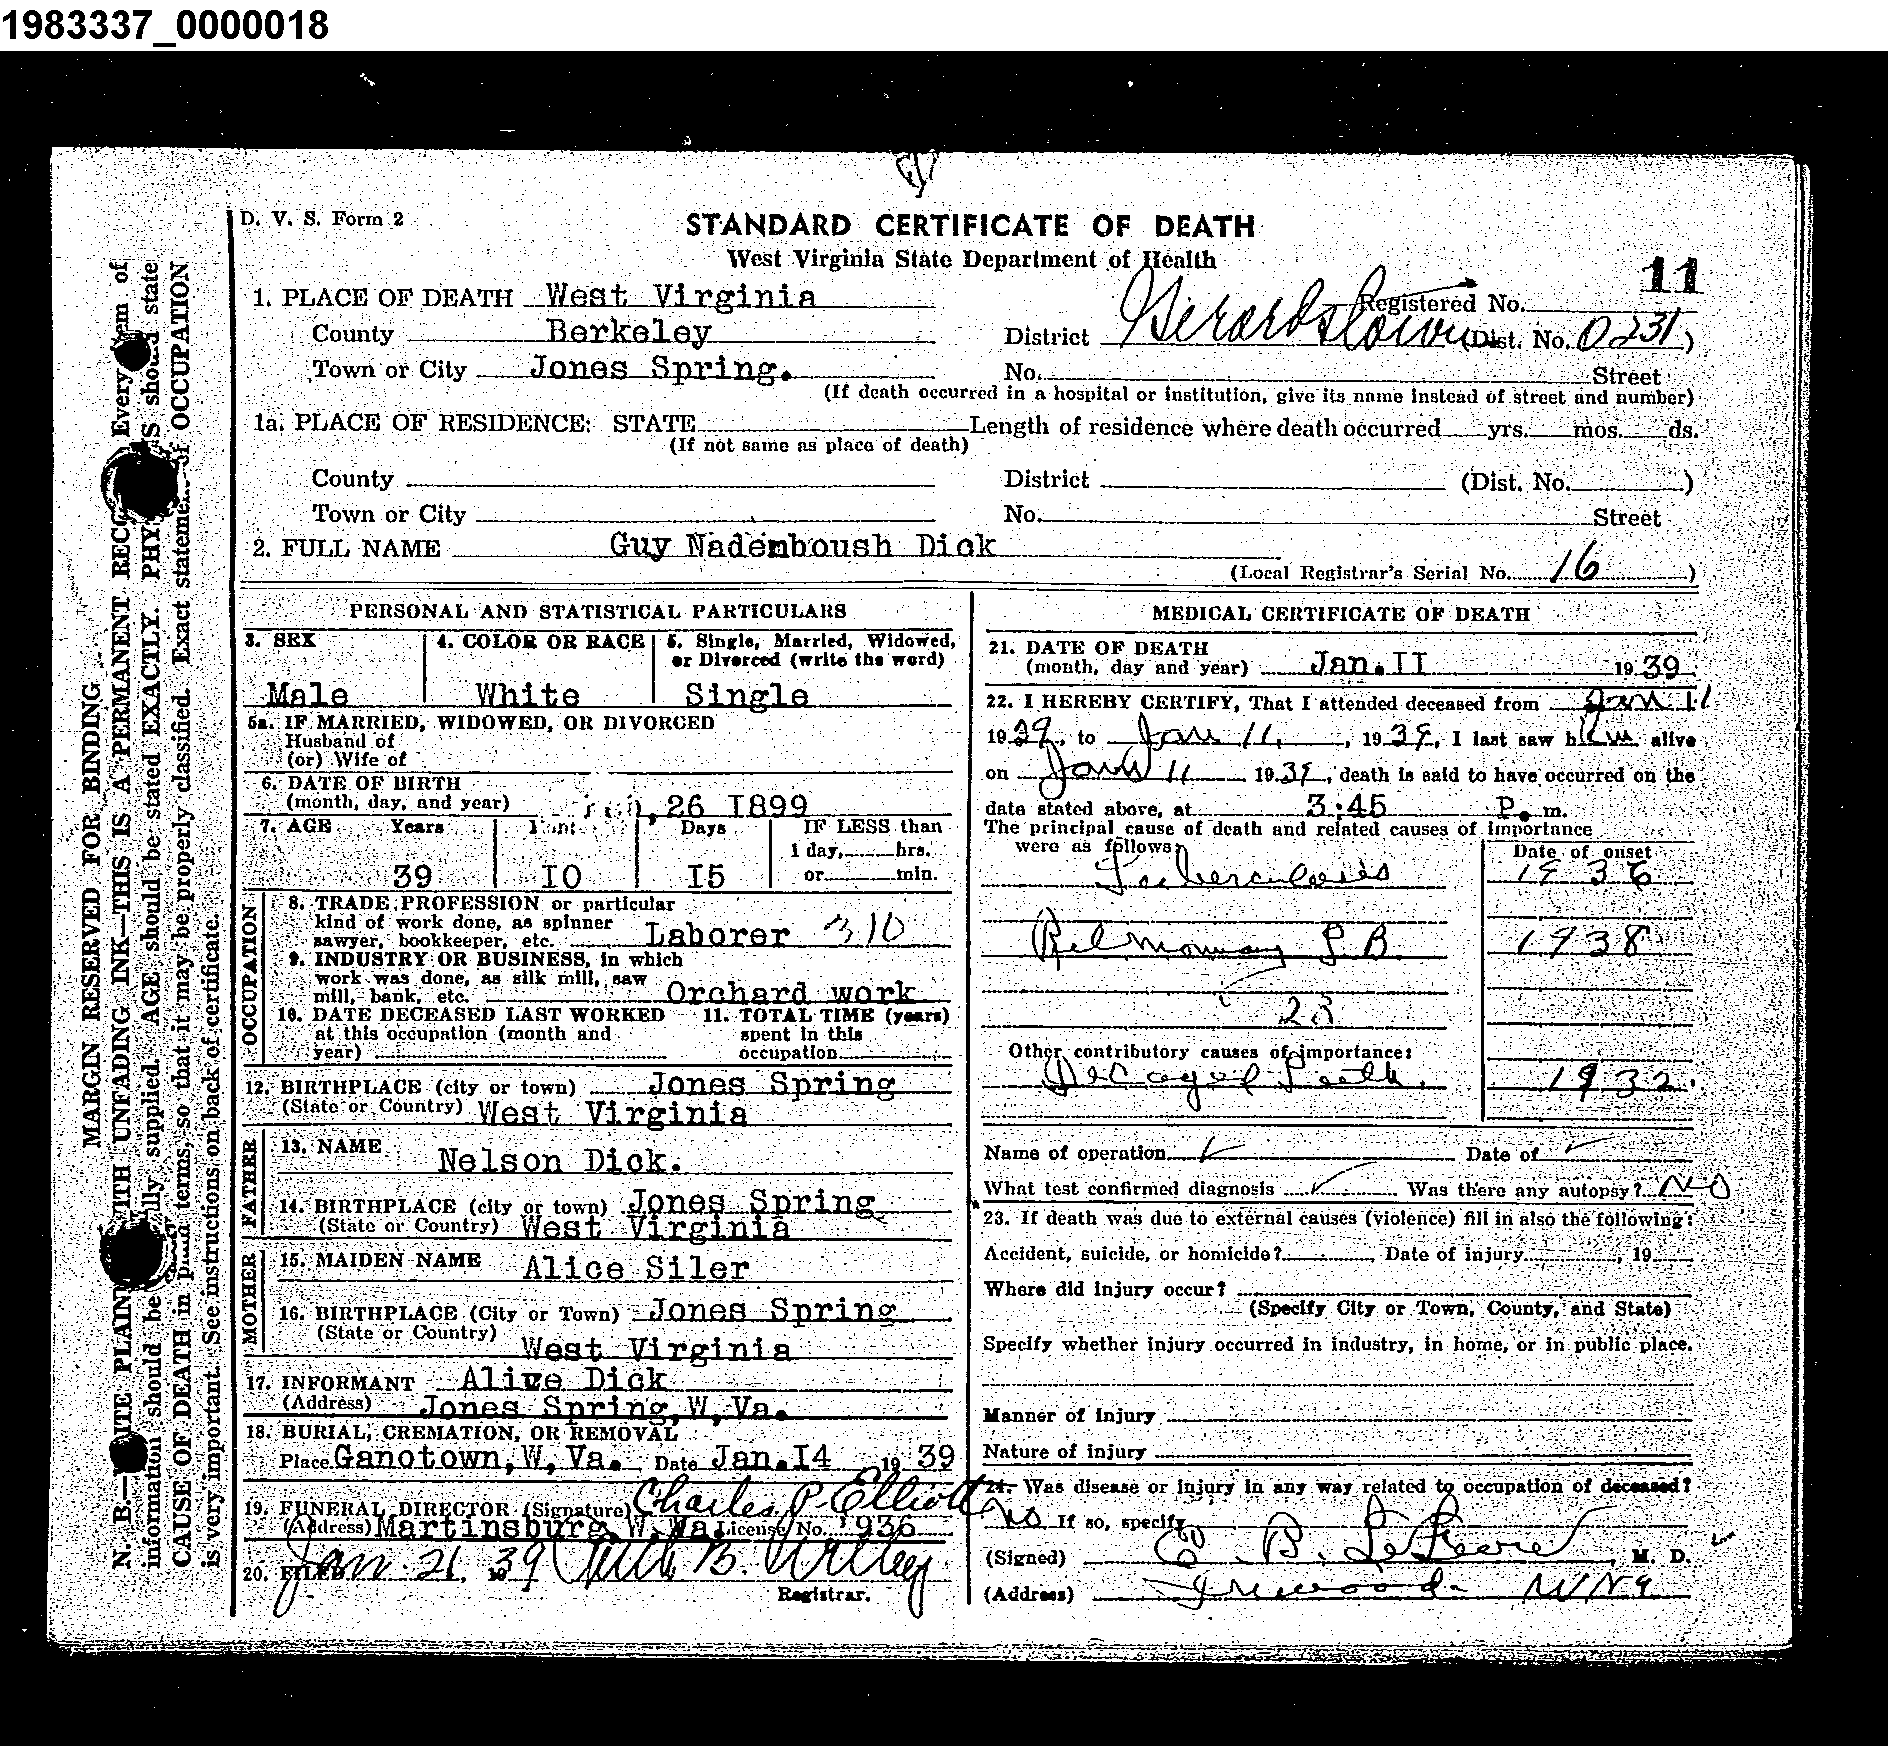 1983337_0000018
D. V. S. Form 2
STANDARD CERTIFICATE OF DEATH
West Virginia State Department of Health
11
1. PLACE OF DEATH West Virginia Registered No.
County Berkeley District Gerardstown (Dist. No. 0231)
Town or City Jones Spring. No. Street
(If death occurred in a hospital or institution, give its name instead of street and number)
1a. PLACE OF RESIDENCE: STATE Length of residence where death occurred yrs. mos. ds.
(If not same as place of death)
County District (Dist. No. )
Town or City No. Street
2. FULL NAME Guy Nadenboush Dick
(Local Registrar's Serial No. 16 )
PERSONAL AND STATISTICAL PARTICULARS
3. SEX
Male
4. COLOR OR RACE
White
5. Single, Married, Widowed,
or Divorced (write the word)
Single
5a. IF MARRIED, WIDOWED, OR DIVORCED
Husband of
(or) Wife of
6. DATE OF BIRTH
(month, day, and year) 26 I899
7. AGE Years Days IF LESS than
1 day, hrs.
39 IO I5 or min.
OCCUPATION
8. TRADE, PROFESSION or particular
kind of work done, as spinner
sawyer, bookkeeper, etc. Laborer 310
9. INDUSTRY OR BUSINESS, in which
work was done, as silk mill, saw
mill, bank, etc. Orchard work
10. DATE DECEASED LAST WORKED
at this occupation (month and
year)
11. TOTAL TIME (years)
spent in this
occupation
12. BIRTHPLACE (city or town) Jones Spring
(State or Country) West Virginia
FATHER
13. NAME Nelson Dick.
14. BIRTHPLACE (city or town) Jones Spring
(State or Country) West Virginia
MOTHER
15. MAIDEN NAME Alice Siler
16. BIRTHPLACE (City or Town) Jones Spring
(State or Country)
West Virginia
17. INFORMANT Alice Dick
(Address) Jones Spring,W,Va.
18. BURIAL, CREMATION, OR REMOVAL
Place Ganotown,W,Va. Date Jan.I4 19 39
19. FUNERAL DIRECTOR (Signature) Charles P. Elliott
(Address) Martinsburg W.Va. License No. 936
20. FILED Jan. 21, 19 39
Registrar.
MEDICAL CERTIFICATE OF DEATH
21. DATE OF DEATH
(month, day and year) Jan.II 19 39
22. I HEREBY CERTIFY, That I attended deceased from Jan 11
19 39, to Jan 11, 19 39, I last saw him alive
on Jan 11 19 39, death is said to have occurred on the
date stated above, at 3:45 P. m.
The principal cause of death and related causes of importance
were as follows: Date of onset
Tuberculosis 1936
Pulmonary T.B. 1938
23
Other contributory causes of importance:
Decayed Teeth. 1932.
Name of operation Date of
What test confirmed diagnosis Was there any autopsy? No
23. If death was due to external causes (violence) fill in also the following:
Accident, suicide, or homicide? Date of injury , 19
Where did injury occur?
(Specify City or Town, County, and State)
Specify whether injury occurred in industry, in home, or in public place.
Manner of injury
Nature of injury
24. Was disease or injury in any way related to occupation of deceased?
No If so, specify
(Signed) E. B. LeFevre , M. D.
(Address) Inwood W Va
MARGIN RESERVED FOR BINDING